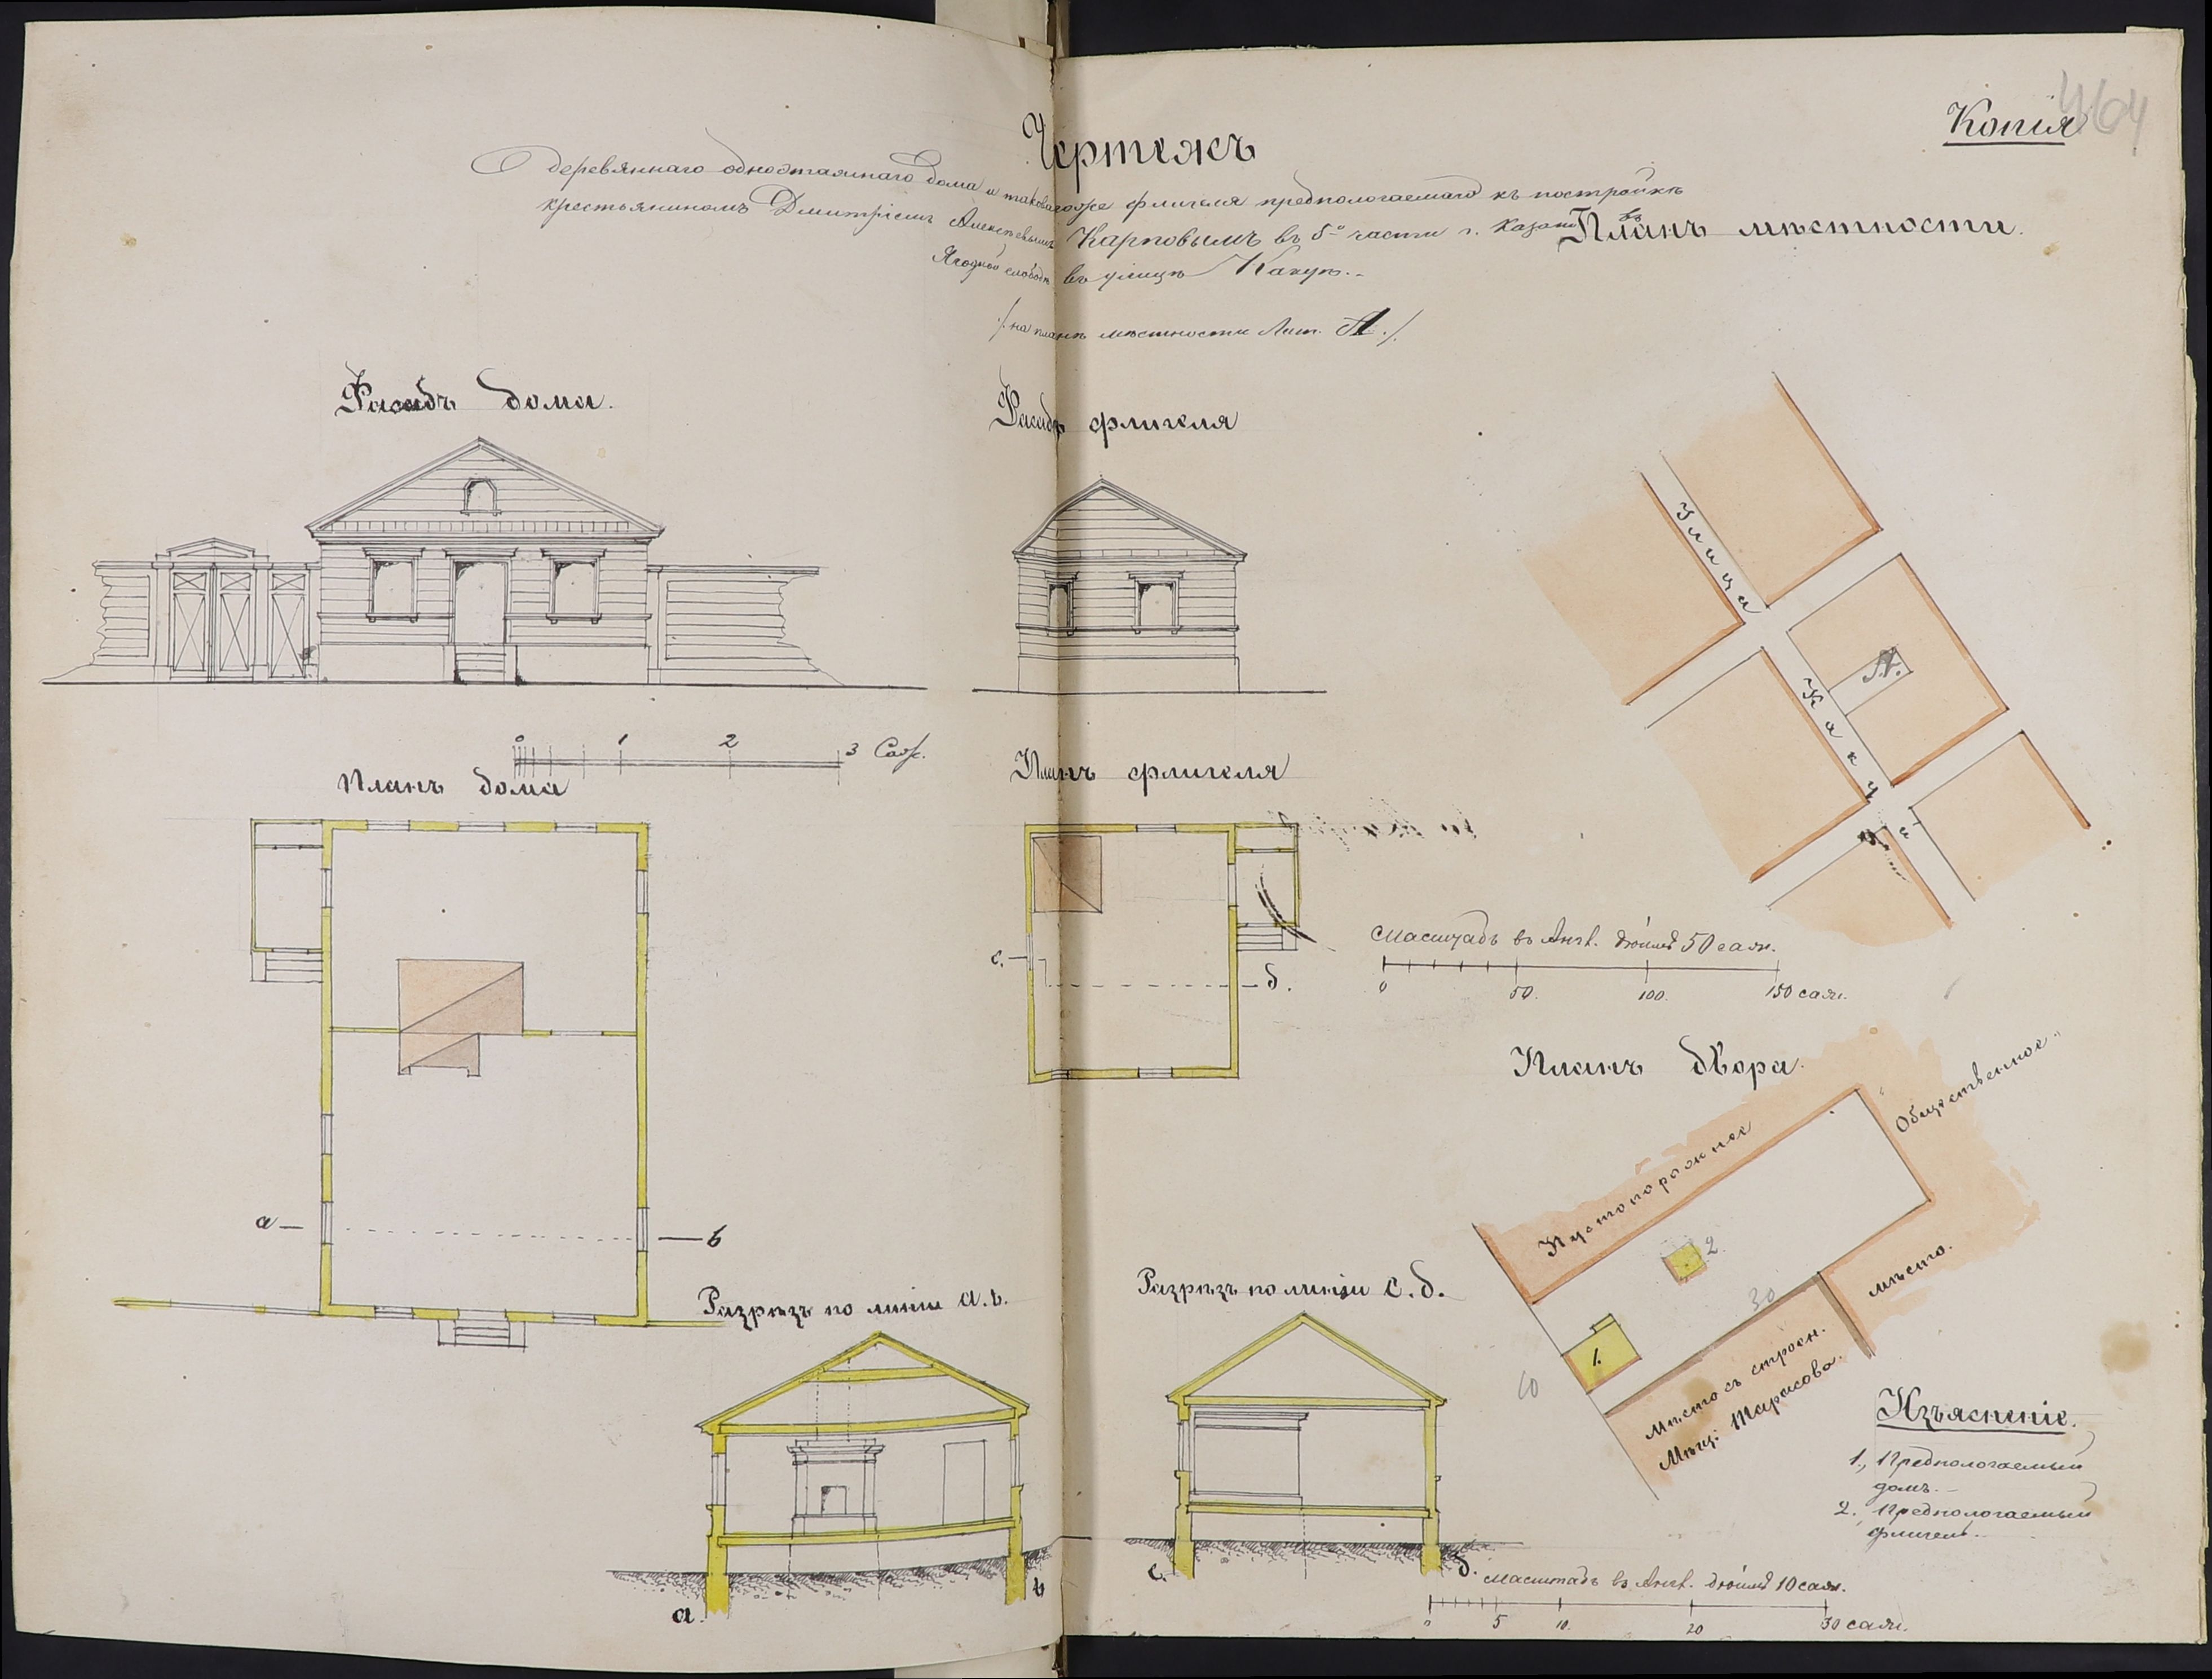 Копія
464
Чертежъ
деревяннаго одноэтажнаго дома и таковагоже флигеля предпологаемаго къ постройкѣ
крестьяниномъ Дмитріемъ Алексѣевымъ Карповымъ въ 5й части г. Казани въ
Ягодной слободѣ въ улицѣ
/на планѣ мѣстности Лит. А./
Планъ мѣстности.
Фасадъ дома.
Фасадъ флигеля
Улица
А.
0 1 2 3 Саж.
Планъ дома
Планъ флигеля
с.
д.
Масштабъ въ Англ. дюймѣ 50 саж.
0 50. 100. 150 саж.
Планъ двора.
Общественное
Пустопорожнее
мѣсто.
2.
30
1.
10
Мѣсто съ строен.
Мѣщ: Тарасова.
а
в
Разрѣзъ по линіи а.в.
Разрѣзъ по линіи с.д.
а.
в
с.
д.
Изъясненіе.
1., Предпологаемый
домъ.-
2. Предпологаемый
флигель.-
Масштабъ въ Англ. дюймѣ 10 саж.
0 5 10. 20 30 саж.